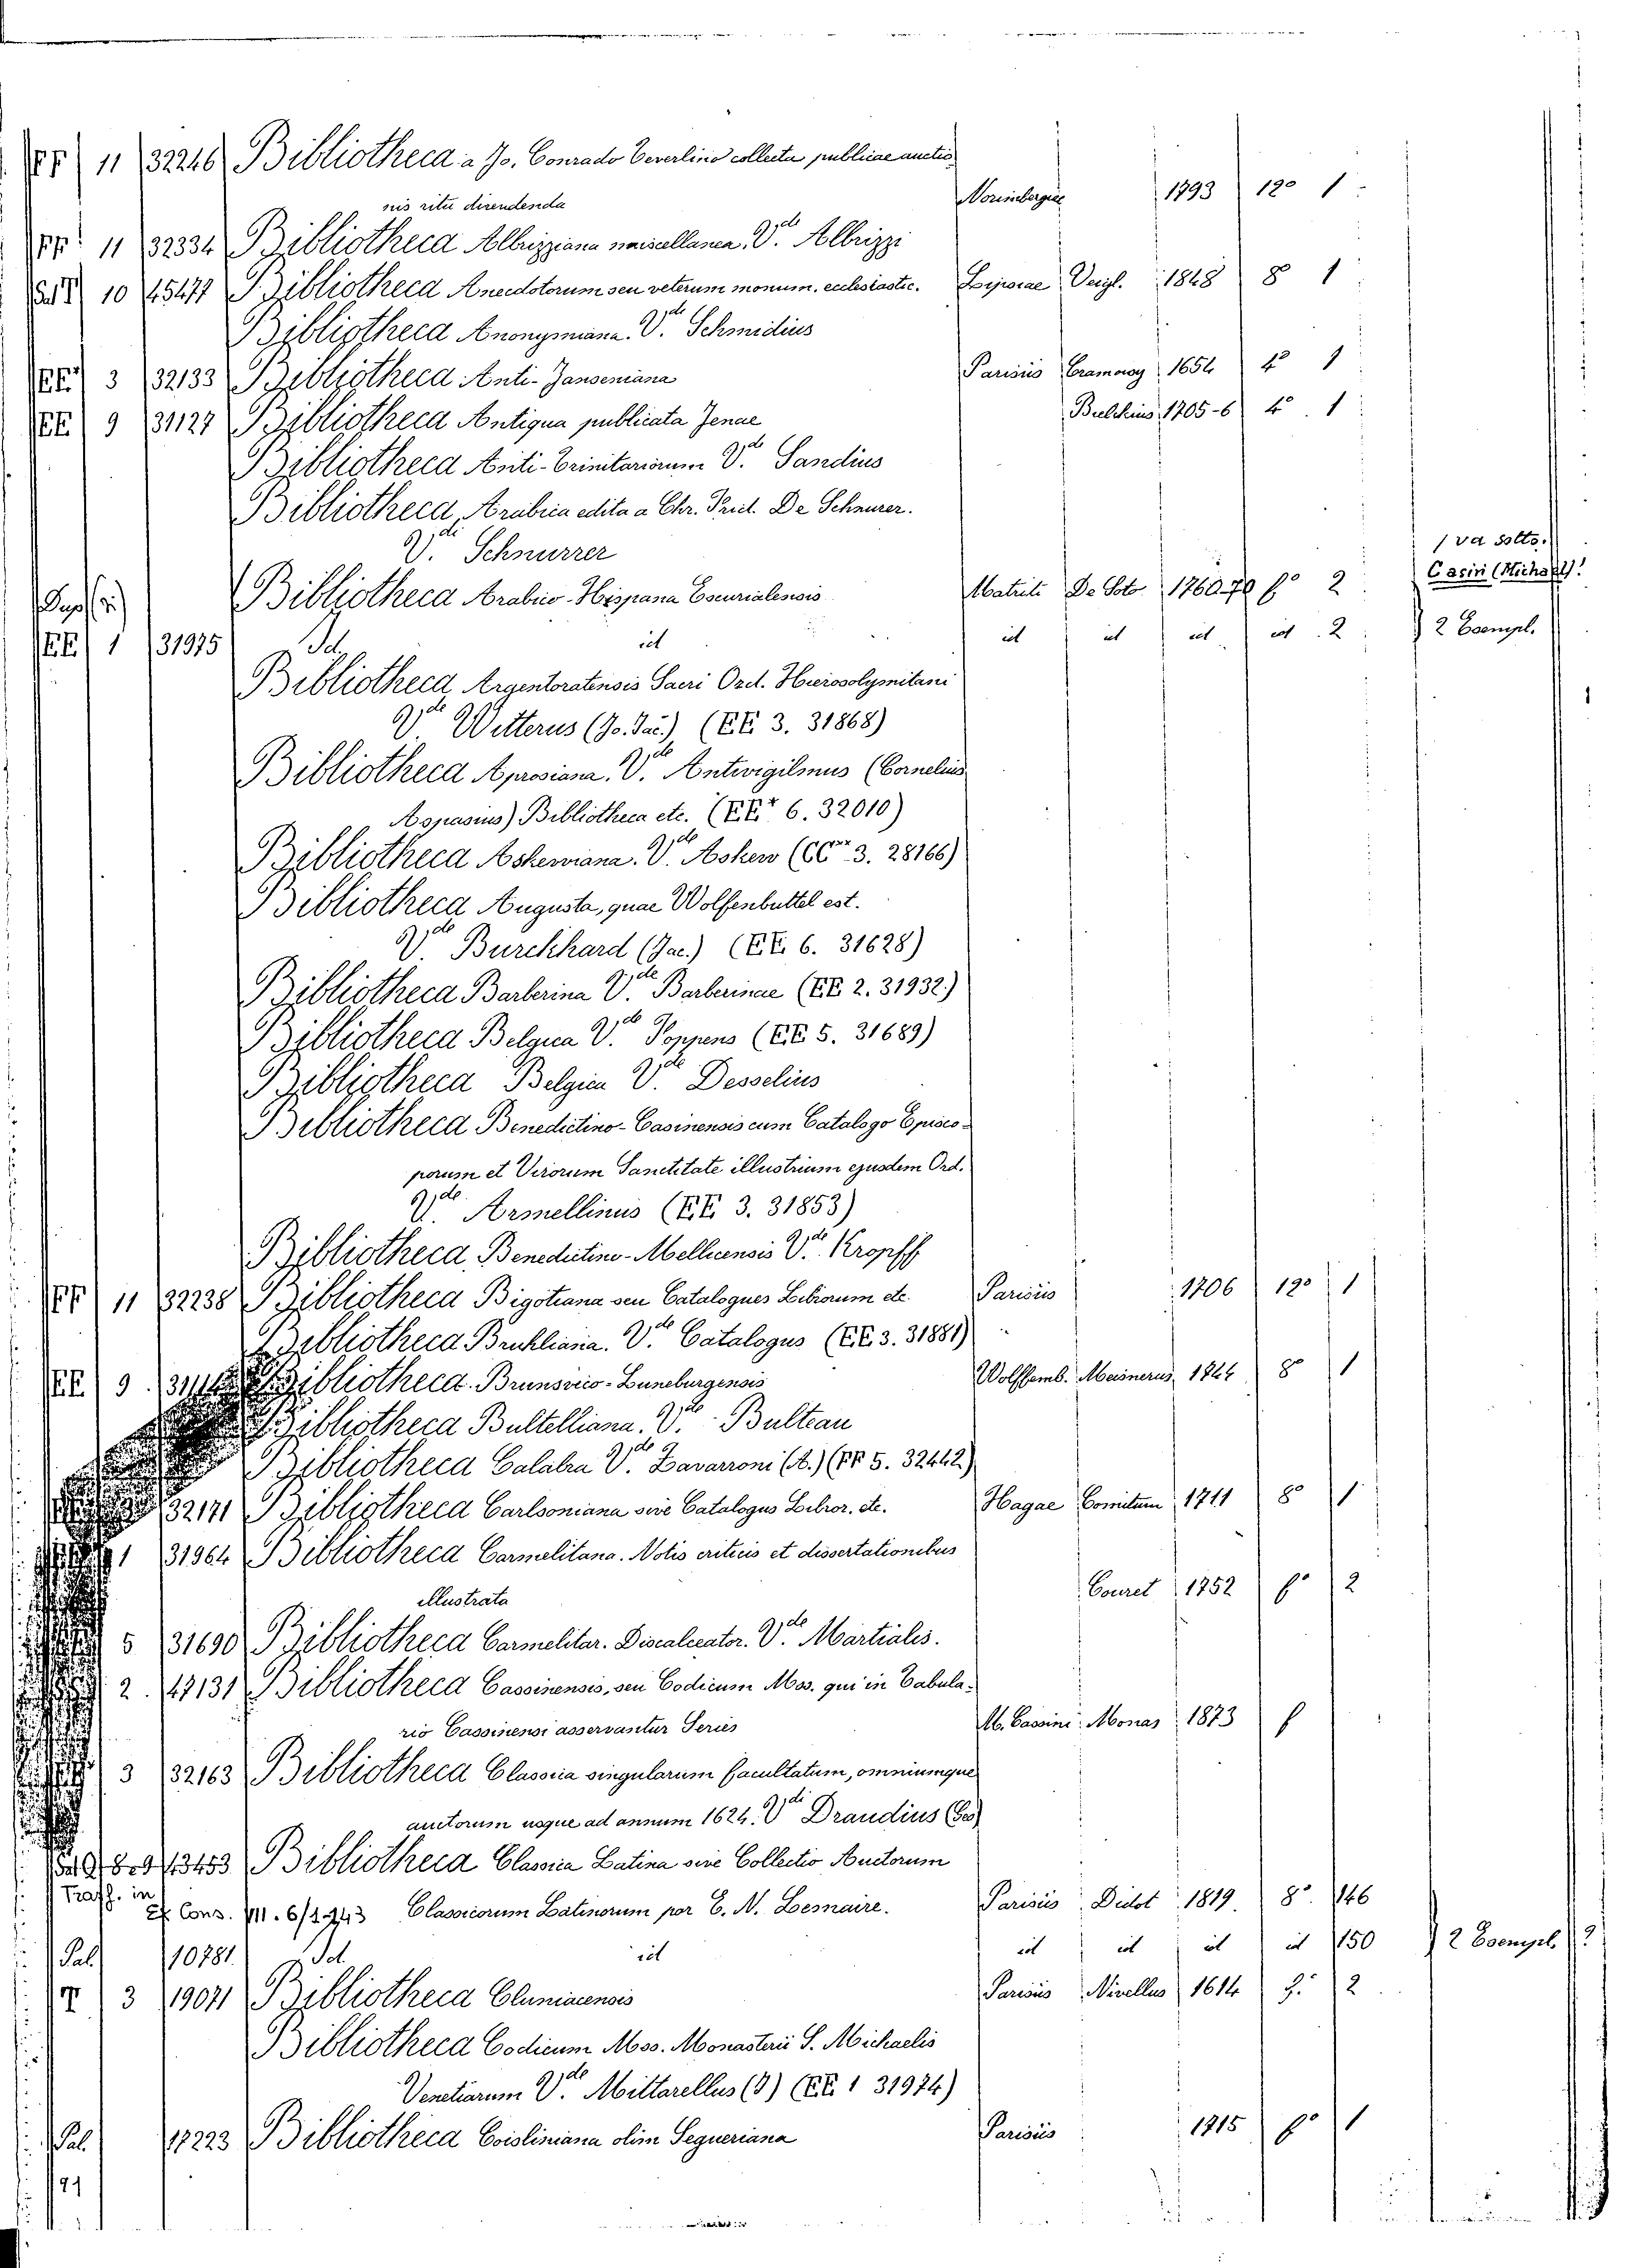 FF 11 32246 Bibliotheca a Jo. Conrado Ceverlino collecta publicae auctio
nis ritu direndenda Norimbergae 1793 12° 1
FF 11 32334 Bibliotheca Albrizziana miscellanea. V.de Albrizzi
10 45477 Bibliotheca Anecdotorum seu veterum monum. ecclesiastic. Lipsiae Veigl. 1848 8° 1
Bibliotheca Anonymiana. V.de Schmidius
EE 3 32133 Bibliotheca Anti-Janseniana Parisiis Cramoisy 1654 4° 1
EE 9 31127 Bibliotheca Antiqua publicata Jenae Bielckius 1705-6 4° 1
Bibliotheca Anti-Trinitariorum V.de Sandius
Bibliotheca Arabica edita a Chr. Frid. De Schnurer.
V.di Schnurrer
Bibliotheca Arabico-Hispana Escurialensis Matriti De Soto 1760-70 f° 2 1 va sotto. Casiri (Michael)
EE 1 31975 Id. id id id id id 2 2 Esempl.
Bibliotheca Argentoratensis Sacri Ord. Hierosolymitani
V.de Witterus (Jo. Jac.) (EE 3. 31868)
Bibliotheca Aprosiana. V.de Antivigilmus (Cornelius
Aspasius) Bibliotheca etc. (EE* 6. 32010)
Bibliotheca Askewiana. V.de Askew (CC** 3. 28166)
Bibliotheca Augusta, quae Wolfenbuttel est.
V.de Burckhard (Jac.) (EE 6. 31628)
Bibliotheca Barberina V.de Barberinae (EE 2. 31932)
Bibliotheca Belgica V.de Foppens (EE 5. 31689)
Bibliotheca Belgica V.de Desselius
Bibliotheca Benedictino-Casinensis cum Catalogo Episco-
porum et Virorum Sanctitate illustrium ejusdem Ord.
V.de Armellinus (EE 3. 31853)
Bibliotheca Benedictino-Mellicensis V.de Kropff
FF 11 32238 Bibliotheca Bigotiana seu Catalogues Librorum etc. Parisiis 1706 12° 1
Bibliotheca Bruhliana. V.de Catalogus (EE 3. 31881)
EE 9 Bibliotheca Brunsvico-Luneburgensis Wolffemb. Meisnerus 1744 8° 1
Bibliotheca Bultelliana. V.de Bulteau
Bibliotheca Calabra V.de Zavarroni (A.) (FF 5. 32442)
32171 Bibliotheca Carlsoniana sive Catalogus Libror. etc. Hagae Comitum 1711 8° 1
1 31964 Bibliotheca Carmelitana. Notis criticis et dissertationibus
illustrata Couret 1752 f° 2
5 31690 Bibliotheca Carmelitar. Discalceator. V.de Martialis.
2. 47131 Bibliotheca Cassinensis, seu Codicum Mss. qui in Tabula-
rio Cassinensi asservantur Series M. Cassini Monas 1873 f
3 32163 Bibliotheca Classica singularum facultatum, omniumque
auctorum usque ad annum 1624. V.di Draudius (Geo)
8 e 9 43453 Bibliotheca Classica Latina sive Collectio Auctorum
Traff. in Cons. VII. 6/1-143 Classicorum Latinorum por E. N. Lemaire. Parisiis Didot 1819 8° 146
Pal. 10781 Id. id id id id id 150 2 Esempl. ?
T 3 19071 Bibliotheca Cluniacensis Parisiis Nivellus 1614 f. 2
Bibliotheca Codicum Mss. Monasterii S. Michaelis
Venetiarum V.de Mittarellus (J) (EE 1 31974)
Pal. 17223 Bibliotheca Coisliniana olim Segueriana Parisiis 1715 f° 1